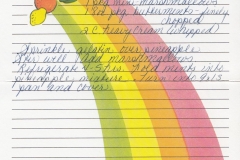 1 8 oz pkg mini marshmallows
1 8 oz pkg buttermints - finely
chopped
2 c heavy cream (whipped)
Sprinkle gelatin over pineapple
Stir well add marshmallows
Refrigerate 4-5 hrs. Fold mints into
pineapple mixture. Turn into 9x13
pan and cover